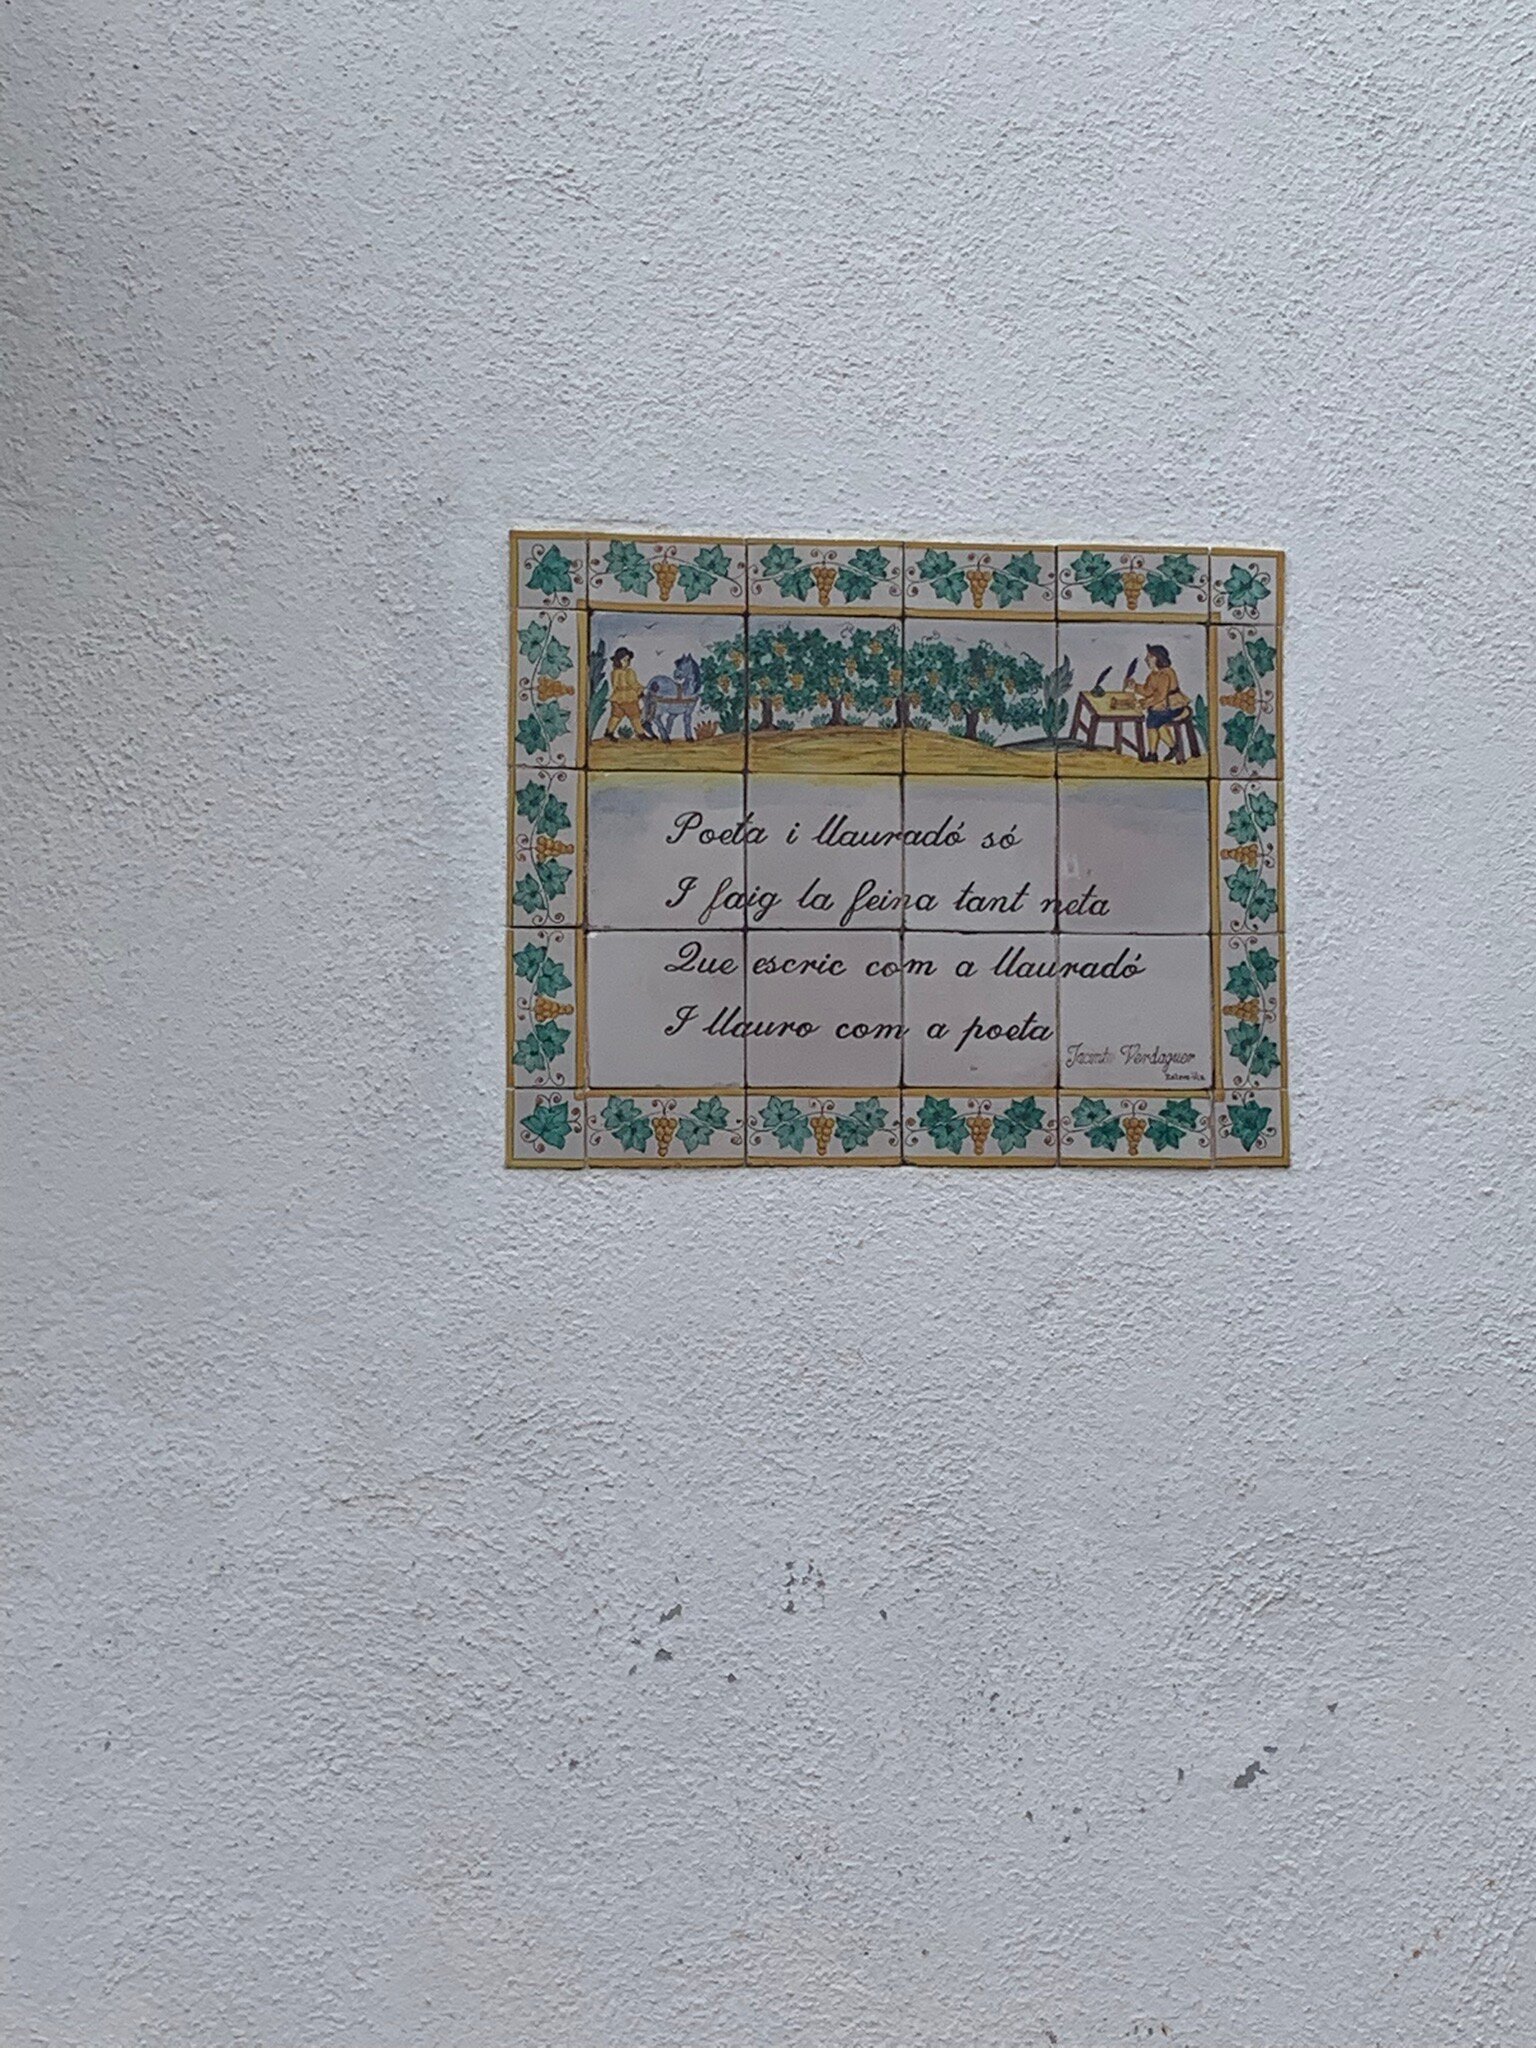 Poeta i llauradó só
I faig la feina tant neta
Que escric com a llauradó
I llauro com a poeta
Jacinto Verdaguer